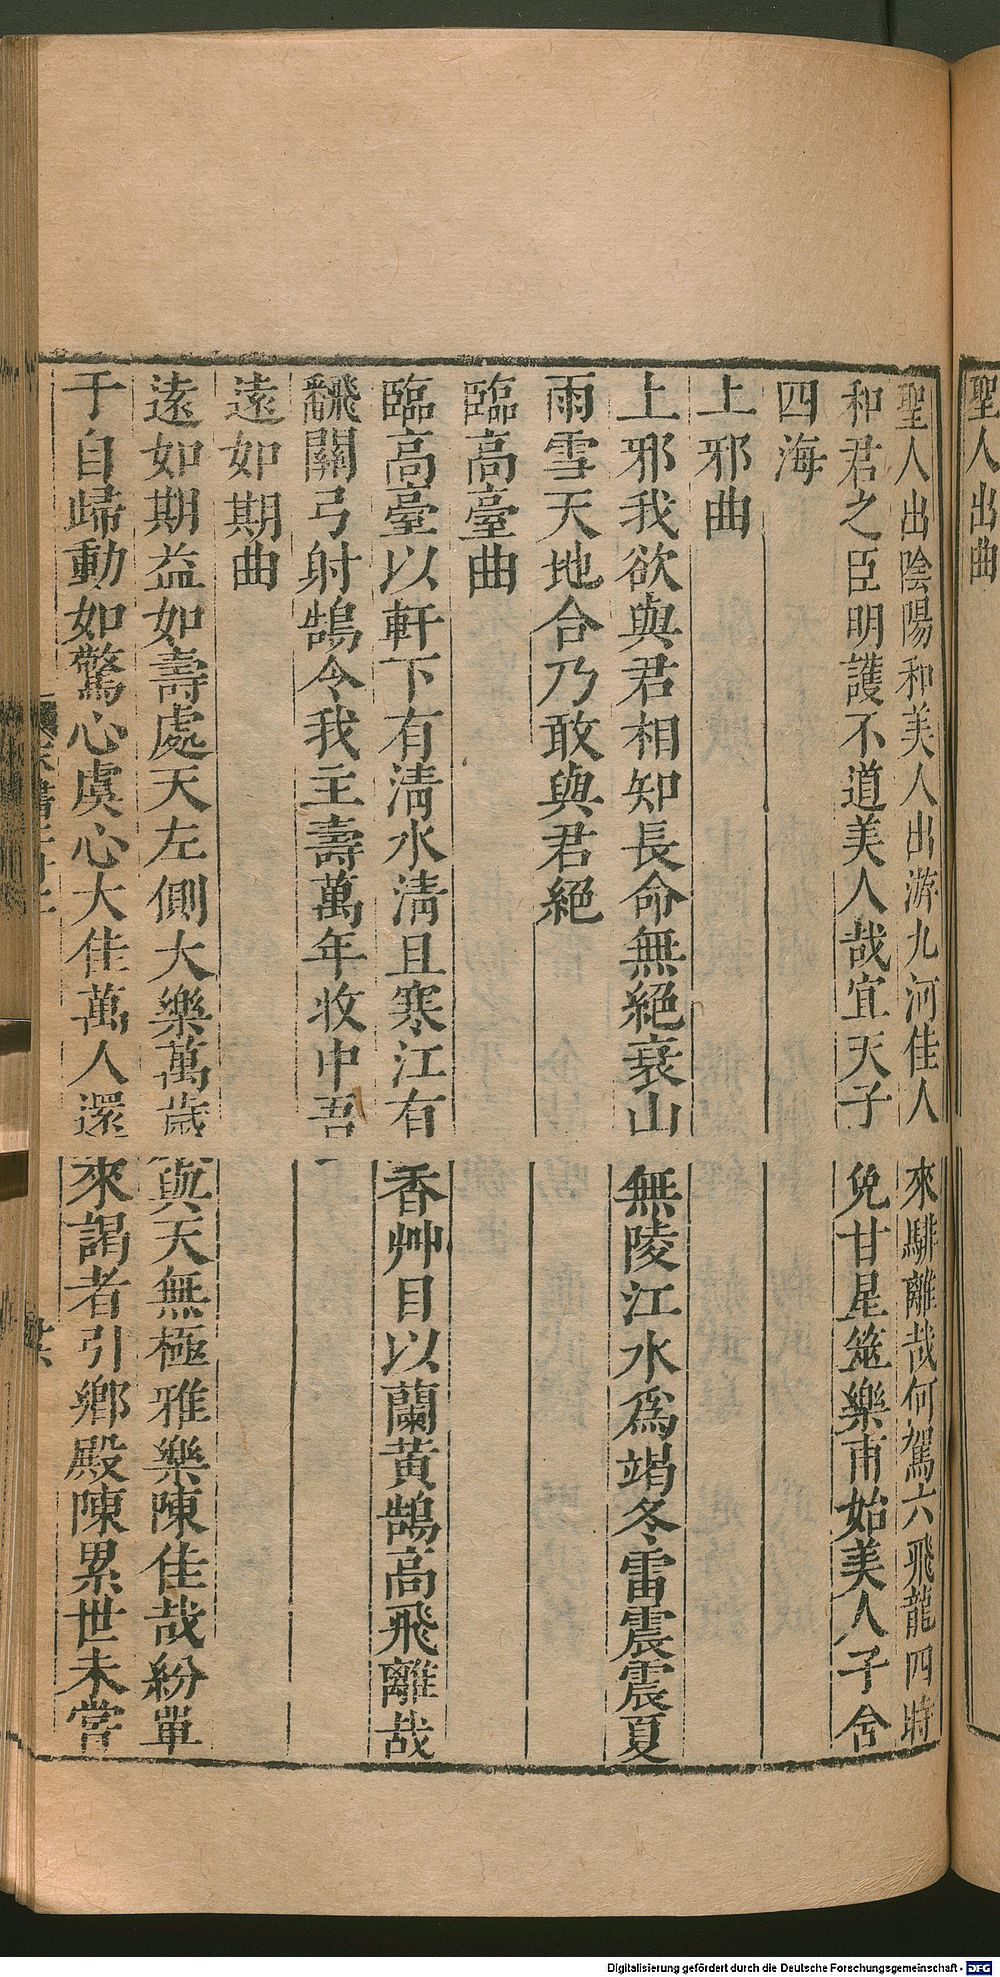 聖人出曲
聖人出陰陽和美人出游九河佳人來騑離哉何駕六飛龍四時
和君之臣明護不道美人哉宜天子免甘星筮樂甫始美人子含
四海
上邪曲
上邪我欲與君相知長命無絕衰山無陵江水爲竭冬雷震震夏
雨雪天地合乃敢與君絕
臨高臺曲
臨高臺以軒下有淸水淸且寒江有香艸目以蘭黃鵠高飛離哉
翻關弓射鵠令我主壽萬年收中吾
遠如期曲
遠如期益如壽處天左側大樂萬歲與天無極雅樂陳佳哉紛單
于自歸動如驚心虞心大佳萬人還來謁者引鄉殿陳累世未嘗
Digitalisierung gefördert durch die Deutsche Forschungsgemeinschaft - DFG